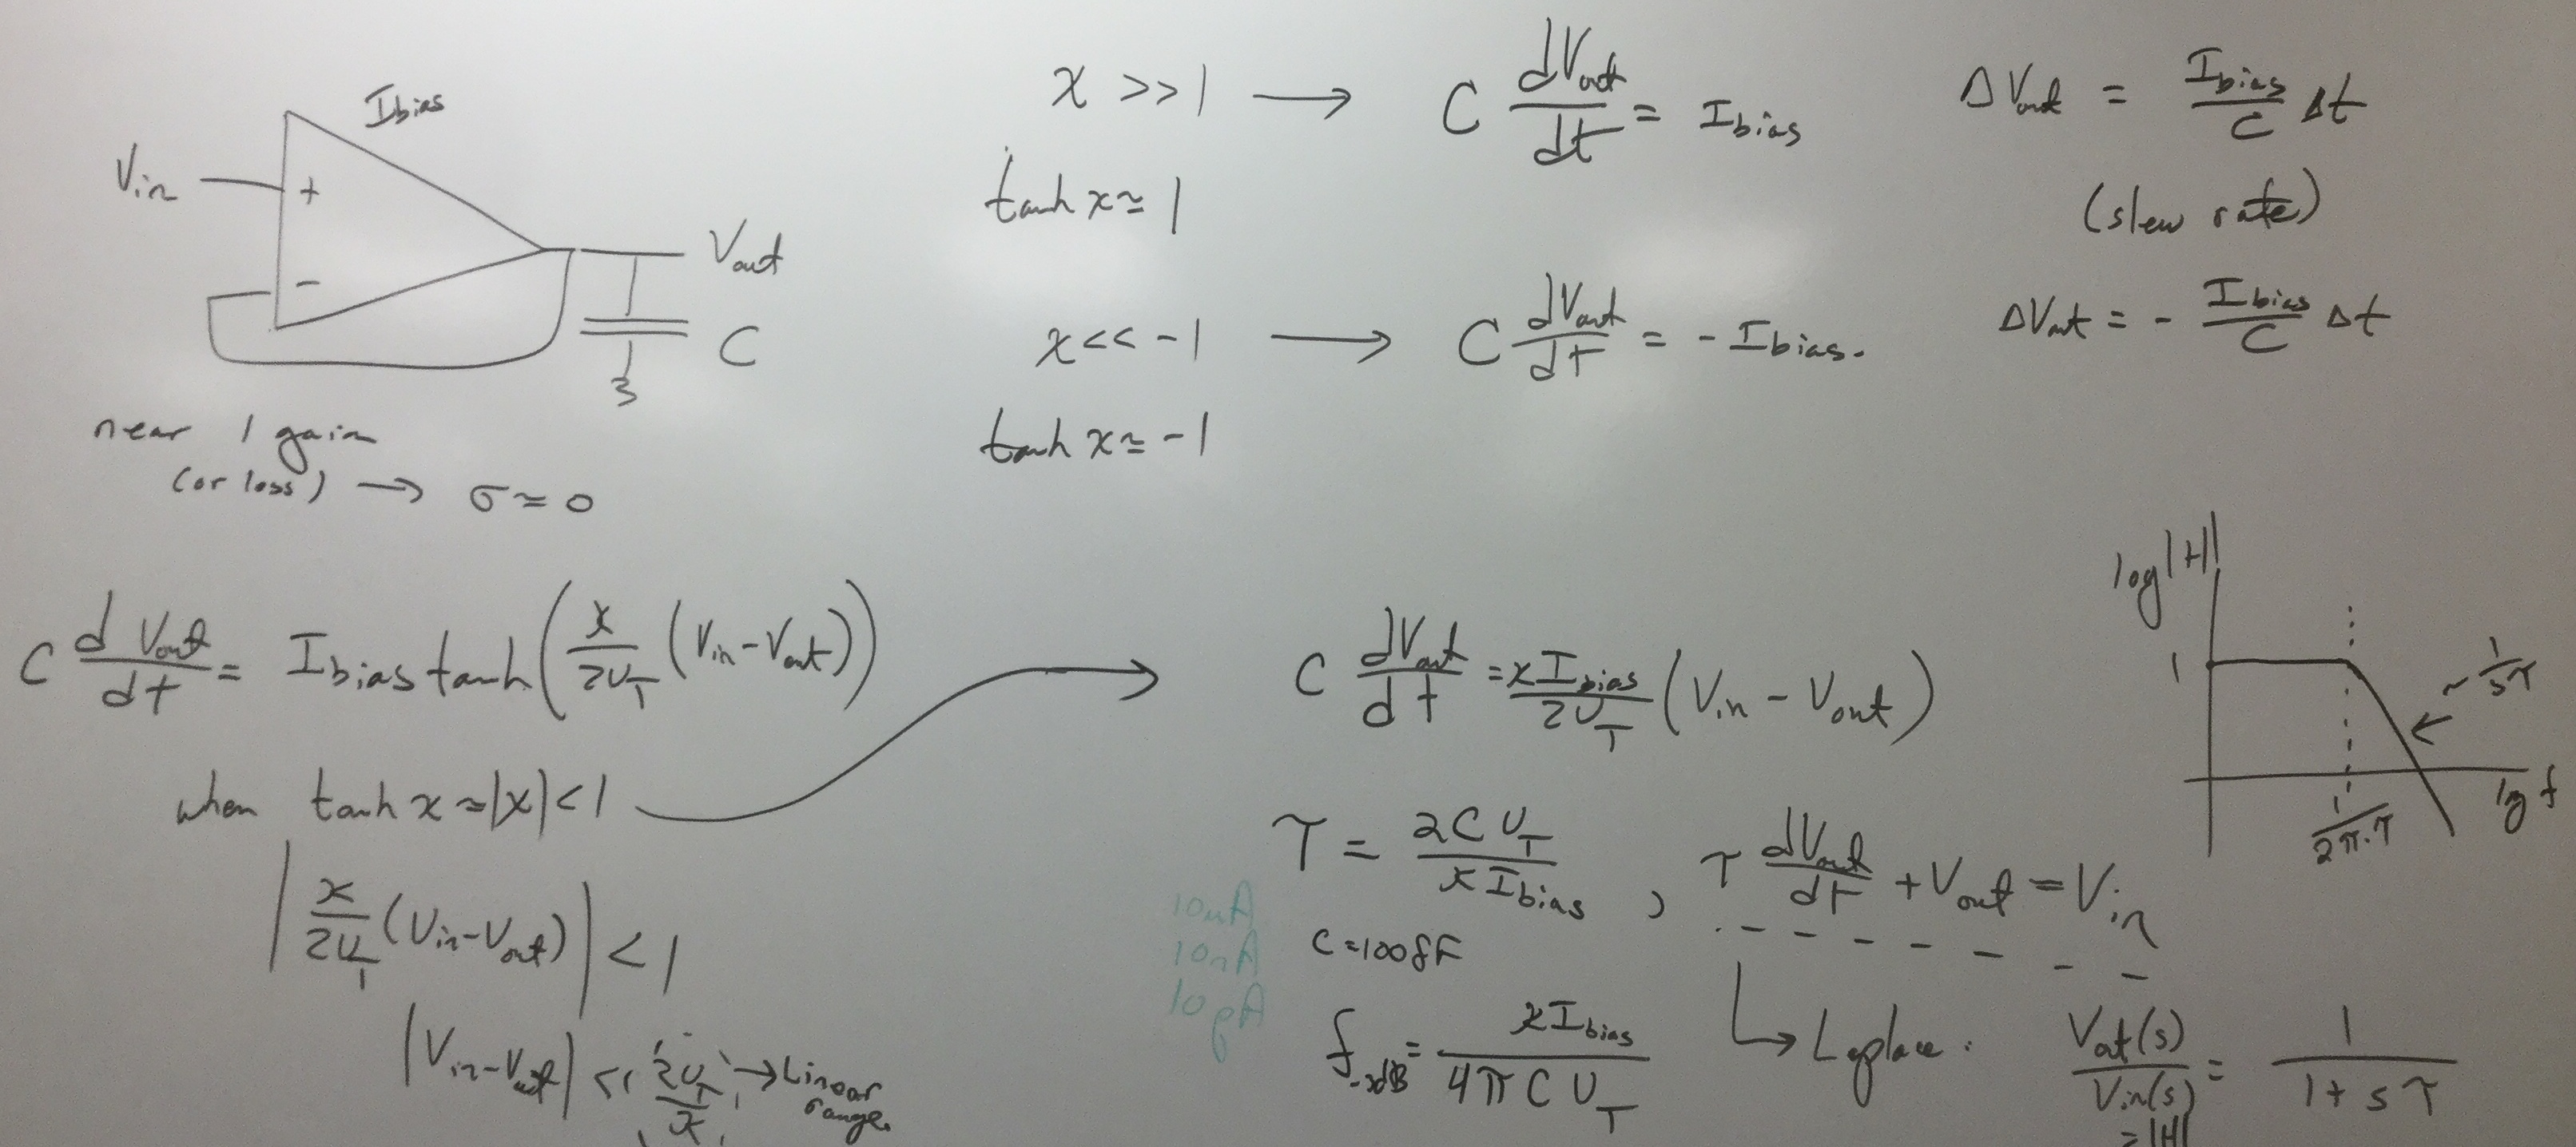 Ibias
Vin
+
-
Vout
C
near 1 gain
(or loss) → σ ≈ 0
x >> 1 → C dVout/dt = Ibias
tanh x ≃ 1
ΔVout = Ibias/C Δt
(slew rate)
x << -1 → C dVout/dt = -Ibias.
tanh x ≃ -1
ΔVout = - Ibias/C Δt
C dVout/dt = Ibias tanh(κ/2U_T (Vin-Vout))
when tanh x ≈ |x| < 1
|κ/2U_T (Vin-Vout)| < 1
|Vin-Vout| << 2U_T/κ → Linear range.
C dVout/dt = κIbias/2U_T (Vin - Vout)
τ = 2CU_T/κIbias , τ dVout/dt + Vout = Vin
10uA
10nA
10pA
C=100fF
f-3dB = κIbias/4πCU_T
Laplace: Vout(s)/Vin(s) = 1/1+sτ
=|H|
log|H|
1
~ 1/sτ
log f
1/2π·τ